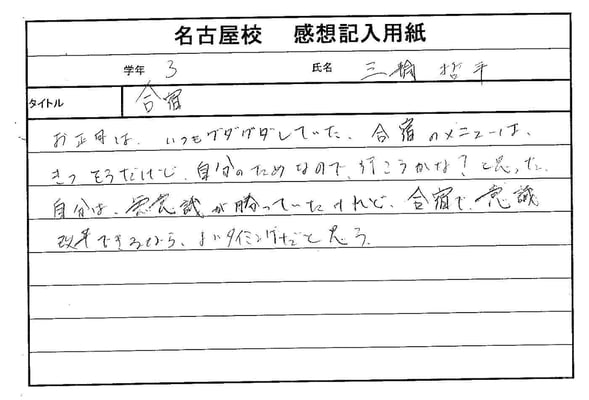 名古屋校 感想記入用紙
学年 3 氏名 三輪 哲平
タイトル 合宿
お正月は、いつもグダグダしていた。合宿のメニューは、
きつそうだけど、自分のためなので、行こうかな?と思った。
自分は、無意識が勝っていたけれど、合宿で、意識
改革できるから、よいタイミングだと思う。